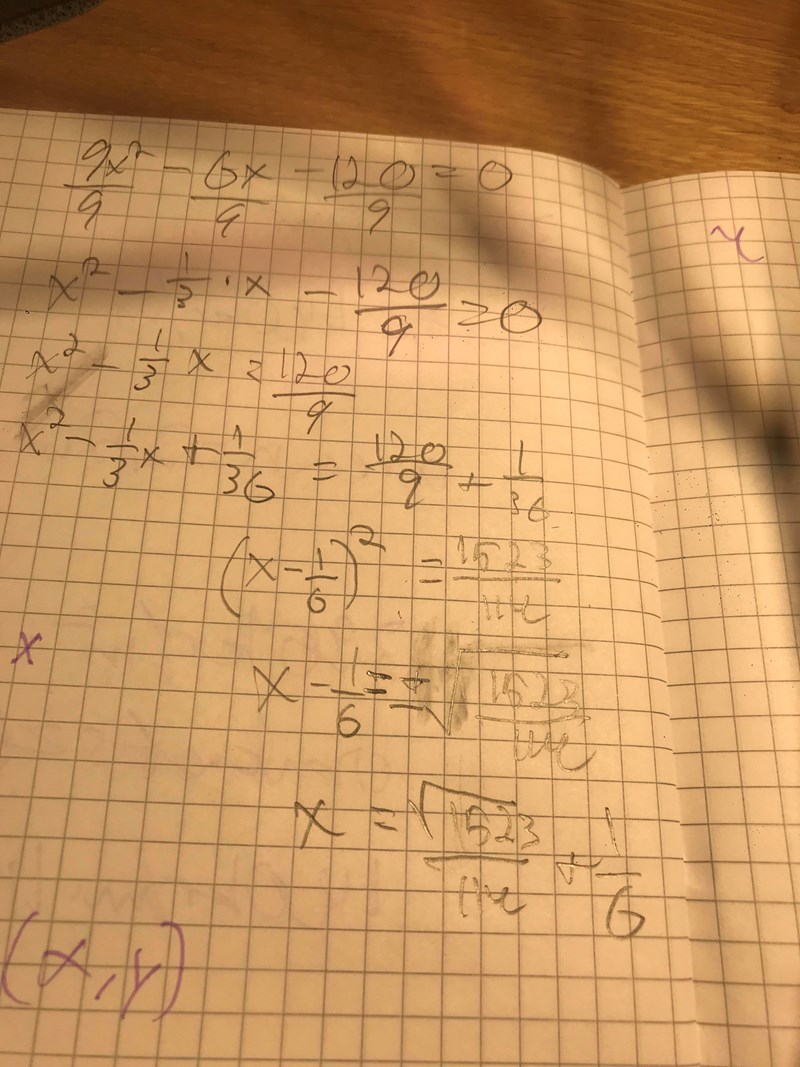 9x²/9 - 6x/9 - 120/9 = 0
x² - 1/3 · x - 120/9 = 0
x² - 1/3 x = 120/9
x² - 1/3 x + 1/36 = 120/9 + 1/36
(x - 1/6)² = 1523
x - 1/6 = ± √1523
x = √1523 + 1/6
x
(x, y)